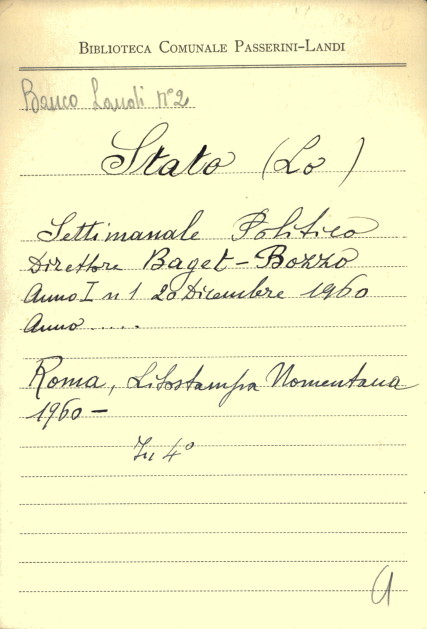 BIBLIOTECA COMUNALE PASSERINI-LANDI
Banco Landi n° 2
Stato (Lo)
Settimanale Politico
Direttore Baget-Bozzo
Anno I n 1 20 Dicembre 1960
Anno .....
Roma, Litostampa Nomentana
1960 –
In 4°